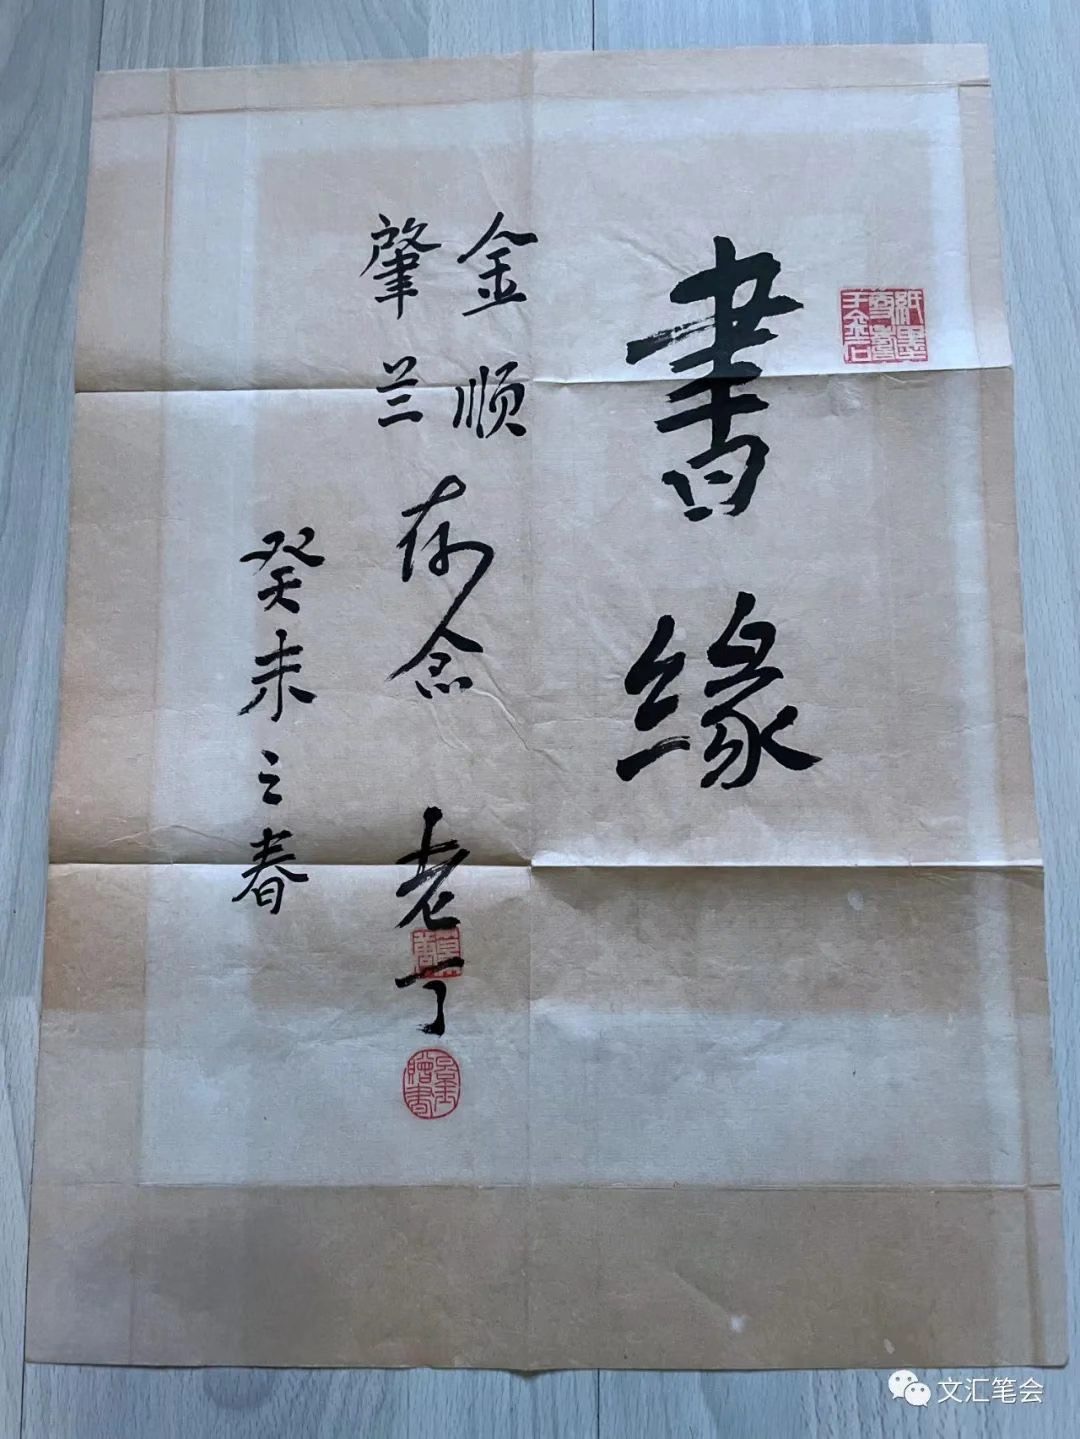 書緣
金顺
肇兰
存念
老丁
癸未之春
文汇笔会